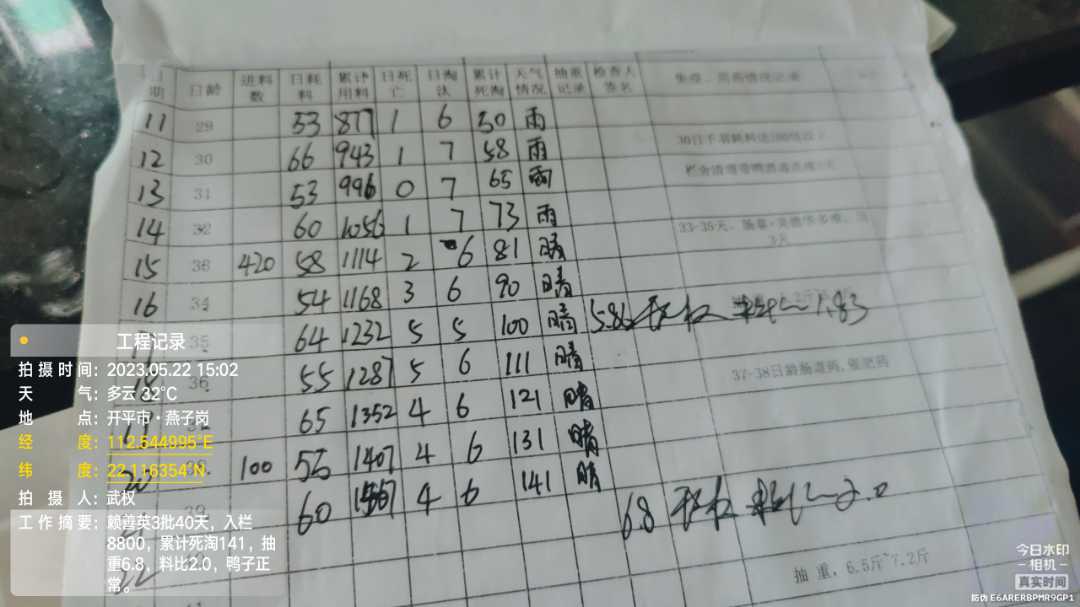 期 日龄 进料数 日耗料 累计用料 日死亡 日淘汰 累计死淘 天气情况 抽重记录 检查人签名
11 29 53 877 1 6 50 雨
12 30 66 943 1 7 58 雨
30日
13 31 53 996 0 7 65 雨
14 32 60 1056 1 7 73 雨
33-35天
15 36 420 58 1114 2 6 81 晴
16 34 54 1168 3 6 90 晴
35 64 1232 5 5 100 晴 5.86 武权 料比~1.83
18 36 55 1287 5 6 111 晴
37-38日龄肠道药,催肥药
65 1352 4 6 121 晴
20 100 55 1407 4 6 131 晴
60 4 6 141 晴
6.8 武权 料比~2.0
22
抽重,6.5斤~7.2斤
工程记录
拍摄时间:2023.05.22 15:02
天气:多云 32°C
地点:开平市·燕子岗
经度:112.544995°E
纬度:22.116354°N
拍摄人:武权
工作摘要:赖善英3批40天,入栏
8800,累计死淘141,抽
重6.8,料比2.0,鸭子正
常。
今日水印
-相机-
真实时间
防伪 E6ARERBPMR9GP1